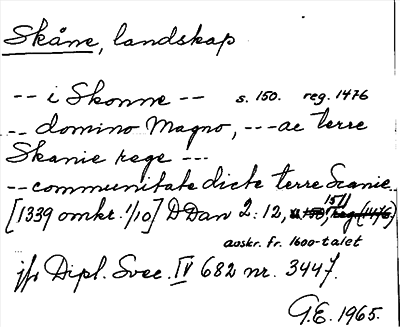 Skåne, landskap
-- i Skonne -- s. 150. reg. 1476
-- domino Magno, --- ac terre
Skanie rege ---
-- communitate dicte terre Scanie
[1339 omkr. 1/10] DDan 2:12, s. 150, reg (1476)
1511
avskr. fr. 1600-talet
jfr Dipl. Svec. IV 682 nr. 3447.
G.E. 1965.